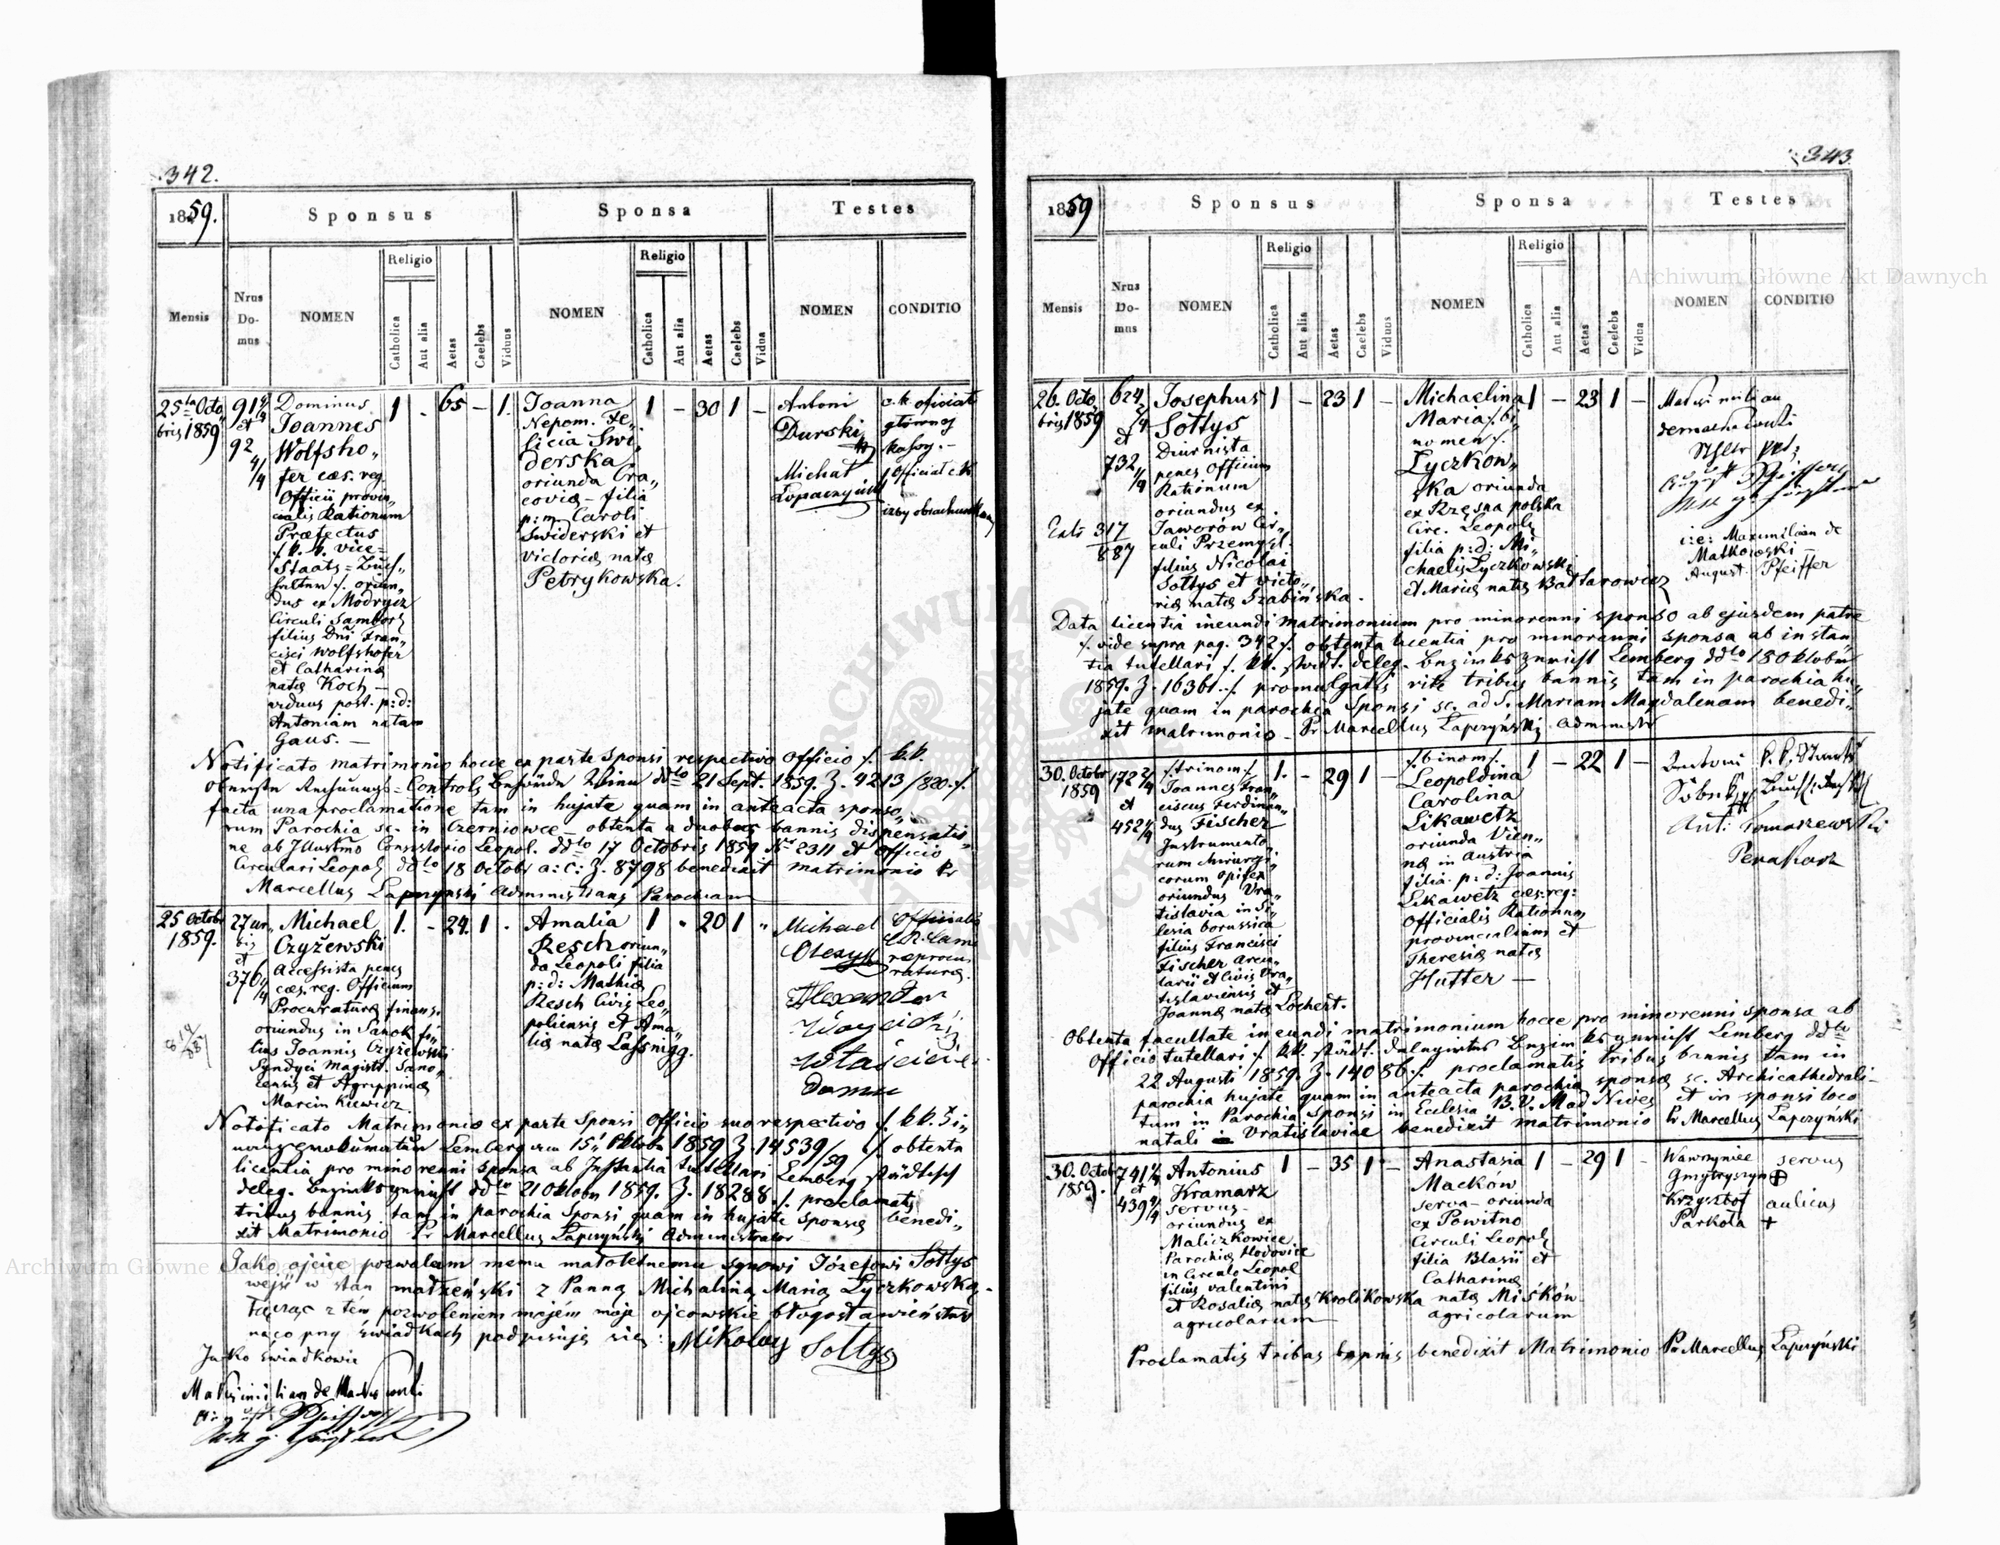 342.
1859.
Sponsus
Sponsa
Testes
Mensis
Nrus Do- mus
NOMEN
Religio
Catholica
Aut alia
Aetas
Caelebs
Viduus
NOMEN
Religio
Catholica
Aut alia
Aetas
Caelebs
Vidua
NOMEN
CONDITIO
25ta Octo
bris 1859
91 2/4
et
92
4/4
Dominus
Joannes
Wolfsho„
fer cæs. reg.
Officii provin„
cialis Rationum
Præfectus
/. k. k. vice=
Staats=Buch„
halter ./. oriun„
dus ex Modrycz
Circuli Sambor
filius Dni Fran„
cisci Wolfshofer
et Catharinæ
natæ Koch —
viduus post. p: d:
Antoniam natam
Gaus. —
1 - 65 - 1.
Joanna
Nepom. Fe„
licia Swi„
derska
oriunda Cra„
coviæ - filia
p: m. Caroli
Swiderski et
Victoriæ natæ
Petrykowska.
1 - 30 1 -
Antoni
Durski
Michał
Łopaczyński
c. k. oficiał
głównej
kasy. -
Official c. k.
izby obrachunkowej
Notificato matrimonio hocce ex parte Sponsi respectivo Officio /. k. k.
Controls Behörde Wien ddto 21 Sept. 1859. Z. 4213/820. /.
facta una proclamatione tam in hujate quam in anteacta sponso„
rum Parochia sc. in Czerniowce - obtenta a duobus bannis dispensatio„
ne ab Illustmo Consistorio Leopol. ddto 17 Octobris 1859 Nr 2311 et Officio
Circulari Leopol ddto 18 Octobr a: c: Z. 8798 benedixit matrimonio Pr
Marcellus Łapczyński Administrans Parochiam
25 Octobr
1859.
27
et
376 1/4
Michael
Czyżewski
Accessista penes
cæs. reg. Officium
Procuraturæ finans.
oriundus in Sanok fi„
lius Joannis Czyżewski
Syndyci Magistr. Sano„
censis et Agrippinæ
Marcinkiewicz.
1. - 24. 1 -
Amalia
Resch oriun„
da Leopoli filia
p: d: Mathiæ
Resch Civis Leo„
poliensis et Ama„
liæ natæ Lassnigg.
1 - 20 1 „
Michael
Olexy
Officialis
Alexander
Woycicki
Właściciel
domu
814/887
Notificato Matrimonio ex parte Sponsi Officio suo respectivo /. k. k. Fi„
Lemberg 15 Oktober 1859 Z. 14539/59 /. obtenta
licentia pro minorenni sponsa ab Instantia tutellari Lemberg städtisch
deleg. Bezirksgericht ddto 21 Oktober 1859. Z. 18288. /. proclamatis
tribus bannis tam in parochia Sponsi quam in hujate sponsæ benedi„
xit Matrimonio Pr Marcellus Łapczyński Administrator
Jako ojciec pozwalam memu małoletniemu synowi Józefowi Sołtys
wejść w stan małżeński z Panną Michaliną Marią Łyczkowską.
Łącząc z tém pozwoleniem mojém moje ojcowskie błogosławieństwo
na co przy świadkach podpisuję się: Mikołay Sołtys
Jako świadkowie
Maksimilian de Matkowski
343.
1859
Sponsus
Sponsa
Testes
Mensis
Nrus Do- mus
NOMEN
Religio
Catholica
Aut alia
Aetas
Caelebs
Viduus
NOMEN
Religio
Catholica
Aut alia
Aetas
Caelebs
Vidua
NOMEN
CONDITIO
26. Octo
bris 1859
624
2/4
et
732
1/4
317
887
Josephus
Sołtys
Diurnista
penes Officium
Rationum
oriundus ex
Jaworów Cir„
culi Przemysl.
filius Nicolai
Sołtys et Victo„
riæ natæ Szabińska.
1 - 23 1 -
Michaelina
Maria /. bi„
nomen /.
Łyczkow„
ska oriunda
ex Rzęsna polska
Circ. Leopol
filia p: d: Mi„
chaelis Łyczkowski
et Mariæ natæ Bałtarowicz
1 - 23 1 -
Maksimilian
de Matkowski
August Pfeiffer
i: e: Maximilian de
Matkowski
August. Pfeiffer
Data licentia ineundi matrimonium pro minorenni sponso ab ejusdem patre
/. vide supra pag. 342 /. obtenta licentia pro minorenni sponsa ab instan„
tia tutellari /. kk. städt. deleg. Bezirksgericht Lemberg ddto 18 Oktober
1859. Z. 16361. /. promulgatis rite tribus bannis tam in parochia hu„
jate quam in parochia Sponsi sc. ad S. Mariam Magdalenam benedi„
xit matrimonio - Pr Marcellus Łapczyński Administr
30. Octobr
1859
172 2/4
et
452 4/4
/. trinom /.
Joannes Fran„
ciscus Ferdinan„
dus Fischer
Instrumento„
rum chirurgi„
corum opifex
oriundus Vra„
tislavia in Si„
lesia borussica
filius Francisci
Fischer
larii et Civis Vra„
tislaviensis et
Joannæ natæ Lochert.
1. - 29 1 -
/. binom /.
Leopoldina
Carolina
Likawetz
oriunda Vien„
næ in Austria
filia p: d: Joannis
Likawetz cæs: reg:
Officialis Rationum
provincialium et
Theresiæ natæ
Hutter —
1 - 22 1 -
Antoni
Ant: Tomaszewski
Obtenta facultate ineundi matrimonium hocce pro minorenni sponsa ab
Officio tutellari /. kk. städt. delegirtes Bezirksgericht Lemberg ddto
22 Augusti 1859. Z. 14056. /. proclamatis tribus bannis tam in
parochia hujate quam in anteacta parochia sponsæ sc. Archicathedrali
tum in Parochia Sponsi in Ecclesia B. V. Mad Nives et in sponsi loco
natali Vratislaviæ benedixit matrimonio Pr Marcellus Łapczyński
30. Octobr
1859.
741 1/4
et
439 2/4
Antonius
Kramarz
servus-
oriundus ex
Maliczkowice
Parochiæ Hodowice
in Circulo Leopol
filius Valentini
et Rosaliæ natæ Krolikowska
agricolarum
1 - 35 1 -
Anastasia
Mackow
serva - oriunda
ex Powitno
Circuli Leopol
filia Blasii et
Catharinæ
natæ Miśków
agricolarum
1 - 29 1 -
Wawrzyniec
Gmytryszyn
Krzysztof
Parkoła
servus
aulicus
+
Proclamatis tribus bannis benedixit Matrimonio Pr Marcellus Łapczyński
Archiwum Główne Akt Dawnych
Archiwum Główne